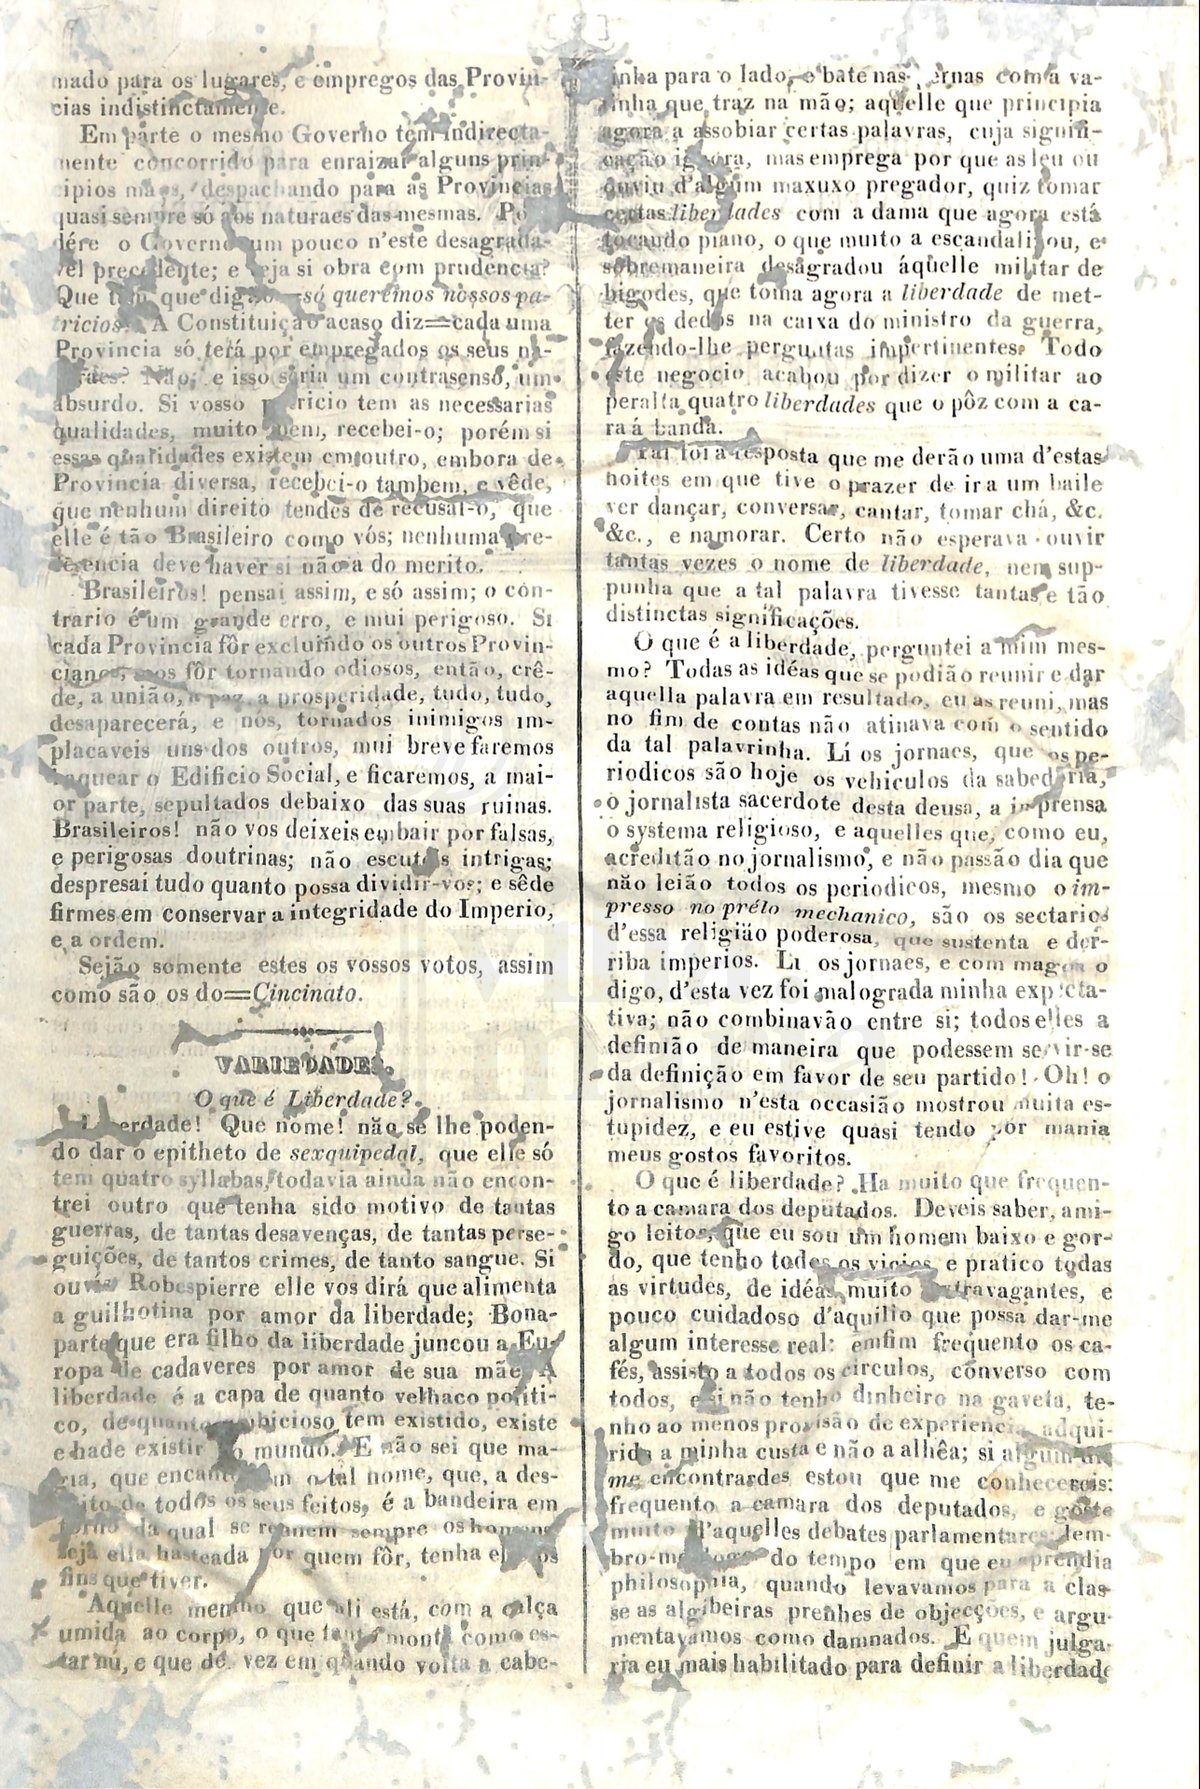 [ 3 ]
mado para os lugares, e empregos das Provin-
cias indistinctamente.
Em parte o mesmo Governo tem indirecta-
mente concorrido para enraizar alguns prin-
cipios maos, despachando para as Provincias
quasi sempre só aos naturaes das mesmas. Po
dére o Governo um pouco n'este desagrada-
vel precedente; e veja si obra com prudencia?
Que tem que digão só queremos nossos pa-
tricios? A Constituição acaso diz=cada uma
Provincia só terá por empregados os seus na-
Não; e isso seria um contrasenso, um
absurdo. Si vosso patricio tem as necessarias
qualidades, muito bem, recebei-o; porém si
essas qualidades existem em outro, embora de
Provincia diversa, recebei-o tambem, e vêde,
que nenhum direito tendes de recusal-o, que
elle é tão Brasileiro como vós; nenhuma pre-
ferencia deve haver si não a do merito.
Brasileiros! pensai assim, e só assim; o con-
trario é um grande erro, e mui perigoso. Si
cada Provincia fôr excluindo os outros Provin-
cianos, nos fôr tornando odiosos, então, crê-
de, a união, a paz, a prosperidade, tudo, tudo,
desaparecerá, e nós, tornados inimigos im-
placaveis uns dos outros, mui breve faremos
baquear o Edificio Social, e ficaremos, a mai-
or parte, sepultados debaixo das suas ruinas.
Brasileiros! não vos deixeis embair por falsas,
e perigosas doutrinas; não escuteis intrigas;
despresai tudo quanto possa dividir-vos; e sêde
firmes em conservar a integridade do Imperio,
e a ordem.
Sejão somente estes os vossos votos, assim
como são os do=Cincinato.
VARIEDADES.
O que é Liberdade?
Liberdade! Que nome! não se lhe poden-
do dar o epitheto de sexquipedal, que elle só
tem quatro syllabas, todavia ainda não encon-
trei outro que tenha sido motivo de tantas
guerras, de tantas desavenças, de tantas perse-
guições, de tantos crimes, de tanto sangue. Si
ouvis Robespierre elle vos dirá que alimenta
a guilhotina por amor da liberdade; Bona-
parte que era filho da liberdade juncou a Eu-
ropa de cadaveres por amor de sua mãe. A
liberdade é a capa de quanto velhaco politi-
co, de quanto ambicioso tem existido, existe
e hade existir no mundo. E não sei que ma-
gia, que encanto tem o tal nome, que, a des-
peito de todos os seus feitos, é a bandeira em
torno da qual se reunem sempre os homens
seja ella hasteada por quem fôr, tenha elle os
fins que tiver.
Aquelle menino que ali está, com a calça
umida ao corpo, o que tanto monta como es-
tar nú, e que de vez em quando volta a cabe-
inha para o lado, e bate nas pernas com a va-
rinha que traz na mão; aquelle que principia
agora a assobiar certas palavras, cuja signifi-
cação ignora, mas emprega por que as leu ou
ouviu d'algum maxuxo pregador, quiz tomar
certas liberdades com a dama que agora está
tocando piano, o que muito a escandalisou, e
sobremaneira desagradou áquelle militar de
bigodes, que toma agora a liberdade de met-
ter os dedos na caixa do ministro da guerra,
fazendo-lhe perguntas impertinentes. Todo
este negocio acabou por dizer o militar ao
peralta quatro liberdades que o pôz com a ca-
ra á banda.
Tal foi a resposta que me derão uma d'estas
noites em que tive o prazer de ir a um baile
ver dançar, conversar, cantar, tomar chá, &c.
&c., e namorar. Certo não esperava ouvir
tantas vezes o nome de liberdade, nem sup-
punha que a tal palavra tivesse tantas e tão
distinctas significações.
O que é a liberdade, perguntei a mim mes-
mo? Todas as idéas que se podião reunir e dar
aquella palavra em resultado, eu as reuni, mas
no fim de contas não atinava com o sentido
da tal palavrinha. Lí os jornaes, que os pe-
riodicos são hoje os vehiculos da sabedoria,
o jornalista sacerdote desta deusa, a imprensa
o systema religioso, e aquelles que, como eu,
acreditão no jornalismo, e não passão dia que
não leião todos os periodicos, mesmo o im-
presso no prélo mechanico, são os sectarios
d'essa religião poderosa, que sustenta e der-
riba imperios. Li os jornaes, e com magoa o
digo, d'esta vez foi malograda minha expecta-
tiva; não combinavão entre si; todos elles a
definião de maneira que podessem servir-se
da definição em favor de seu partido! Oh! o
jornalismo n'esta occasião mostrou muita es-
tupidez, e eu estive quasi tendo por mania
meus gostos favoritos.
O que é liberdade? Ha muito que frequen-
to a camara dos deputados. Deveis saber, ami-
go leitor, que eu sou um homem baixo e gor-
do, que tenho todos os vicios, e pratico todas
as virtudes, de idéas muito extravagantes, e
pouco cuidadoso d'aquillo que possa dar-me
algum interesse real: emfim frequento os ca-
fés, assisto a todos os circulos, converso com
todos, e si não tenho dinheiro na gaveta, te-
nho ao menos provisão de experiencia, adqui-
rida a minha custa e não a alhêa; si algum dia
me encontrardes estou que me conhecereis:
frequento a camara dos deputados, e gosto
muito d'aquelles debates parlamentares; lem-
bro-me logo do tempo em que eu aprendia
philosophia, quando levavamos para a clas-
se as algibeiras prenhes de objecções, e argu-
mentavamos como damnados. E quem julga-
ria eu mais habilitado para definir a liberdade